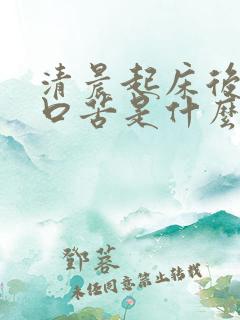 清晨起床後
口苦是什麼
鄧蓉
未经同意禁止转载